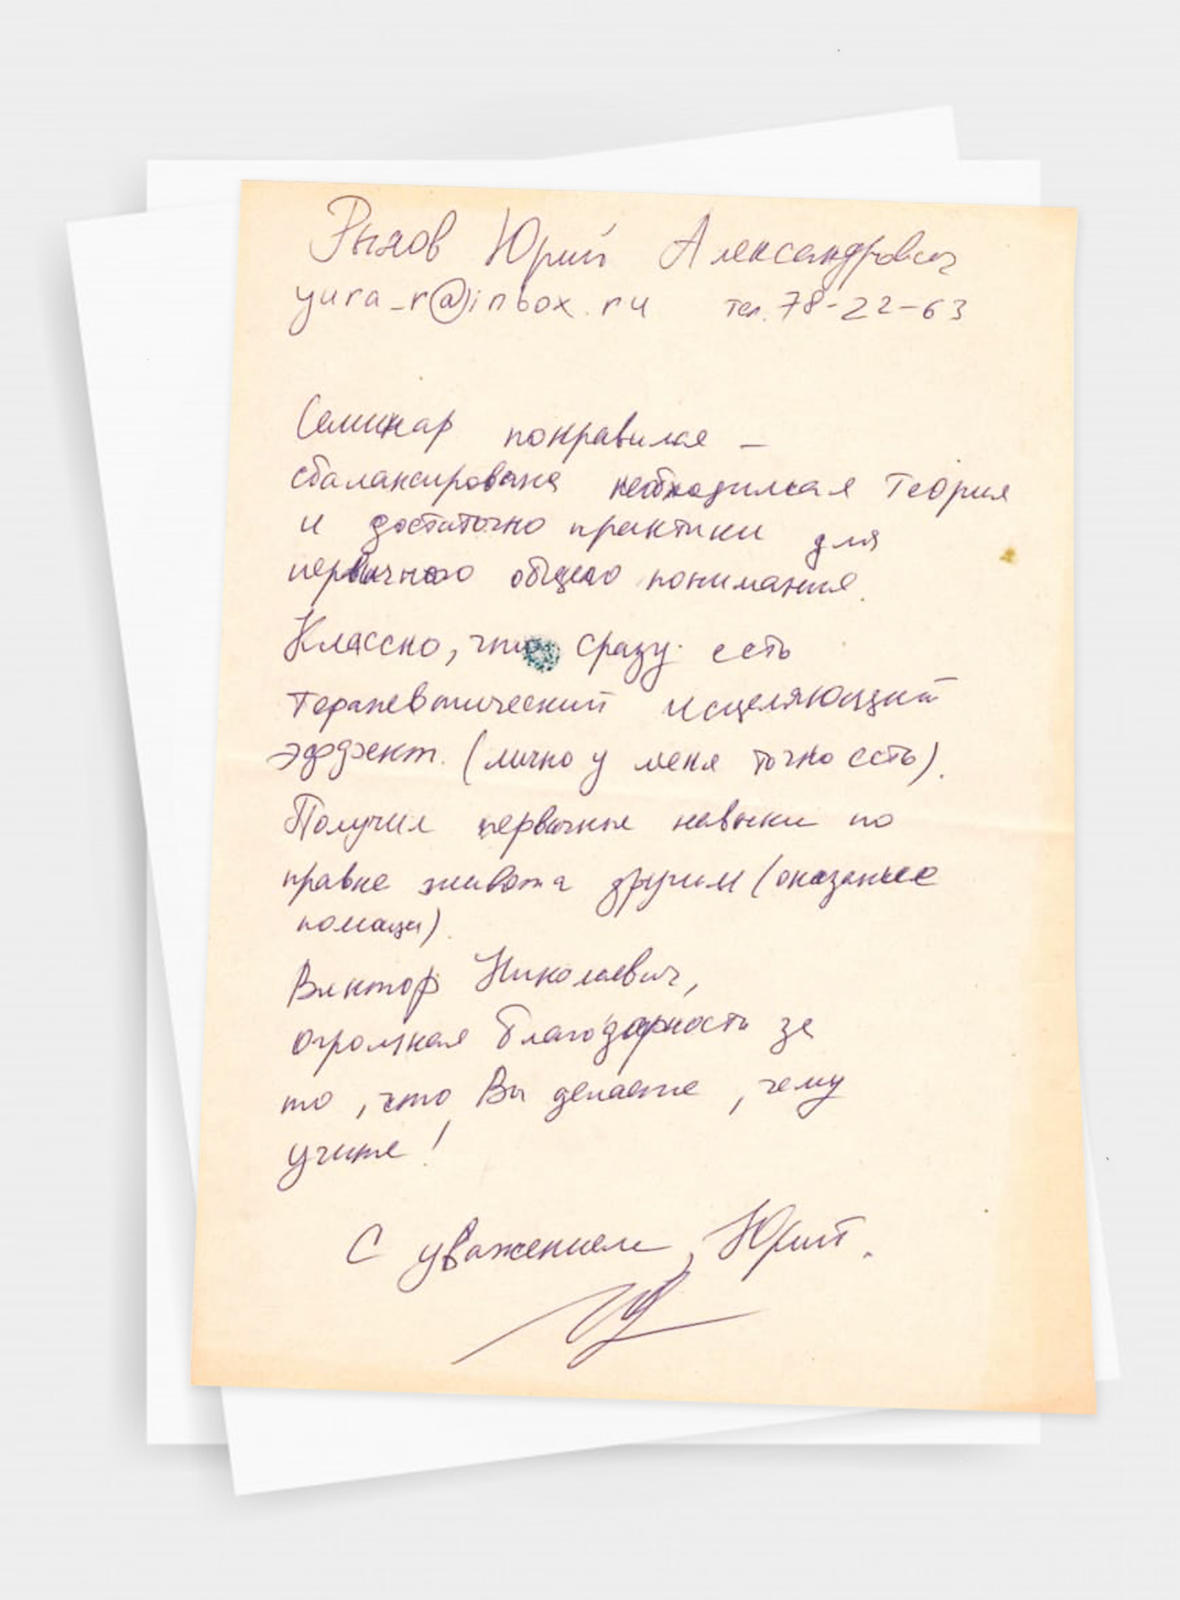 Юрий Александрович
yura_r@inbox.ru тел. 78-22-63
Семинар понравился –
сбалансирована необходимая теория
и достаточно практики для
первичного общего понимания.
Классно, что сразу есть
терапевтический исцеляющий
эффект. (лично у меня точно есть).
Получил первичные навыки по
правке живота другим (оказанье
помощи).
Виктор Николаевич,
огромная благодарность за
то, что Вы делаете, чему
учите!
С уважением, Юрий.